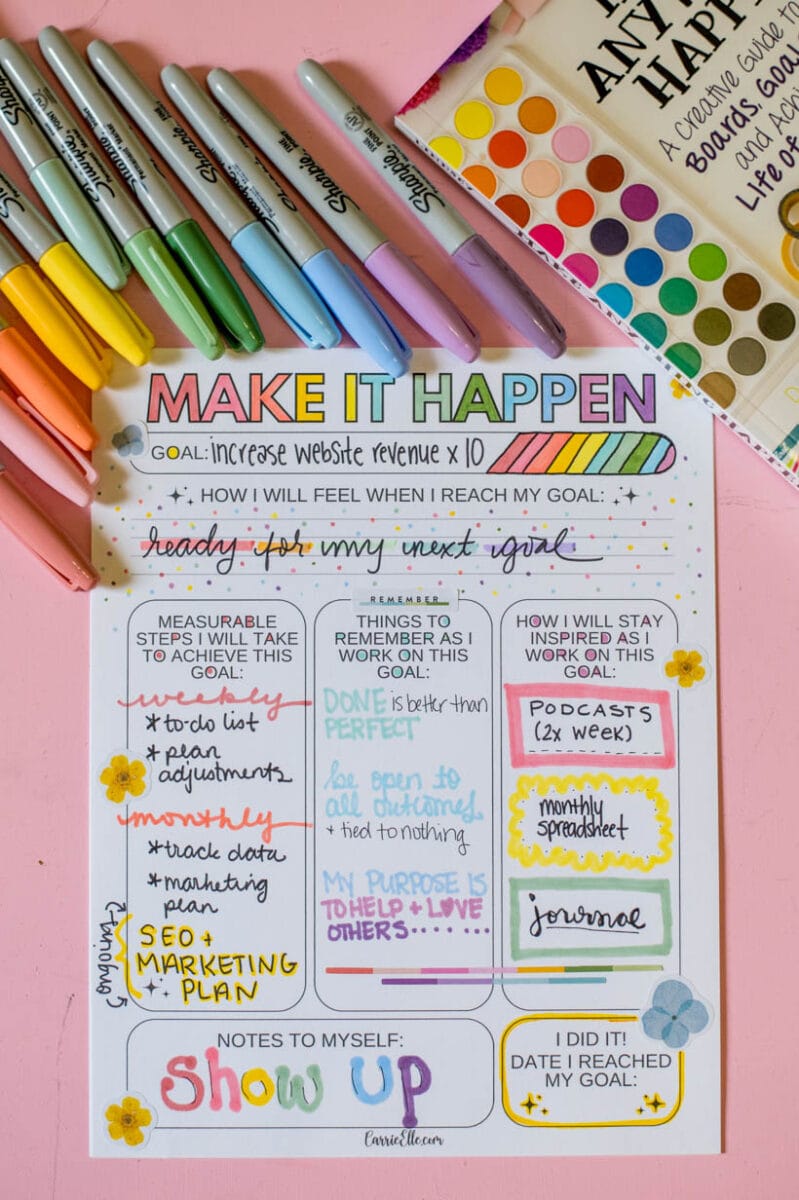 Sharpie
FINE POINT
Sharpie
Sharpie
FINE
Sharpie
FINE POINT
HAPP
A Creative Guide to
Boards, Goal
and Achi
Life of
MAKE IT HAPPEN
GOAL: increase website revenue x 10
HOW I WILL FEEL WHEN I REACH MY GOAL:
ready for my next goal
MEASURABLE
STEPS I WILL TAKE
TO ACHIEVE THIS
GOAL:
weekly
*to-do list
*plan
adjustments
monthly
*track data
*marketing
plan
ongoing
SEO +
MARKETING
PLAN
REMEMBER
THINGS TO
REMEMBER AS I
WORK ON THIS
GOAL:
DONE is better than
PERFECT
be open to
all outcomes
+ tied to nothing
MY PURPOSE IS
TO HELP + LOVE
OTHERS........
HOW I WILL STAY
INSPIRED AS I
WORK ON THIS
GOAL:
PODCASTS
(2x week)
monthly
spreadsheet
journal
NOTES TO MYSELF:
show up
I DID IT!
DATE I REACHED
MY GOAL:
CarrieElle.com